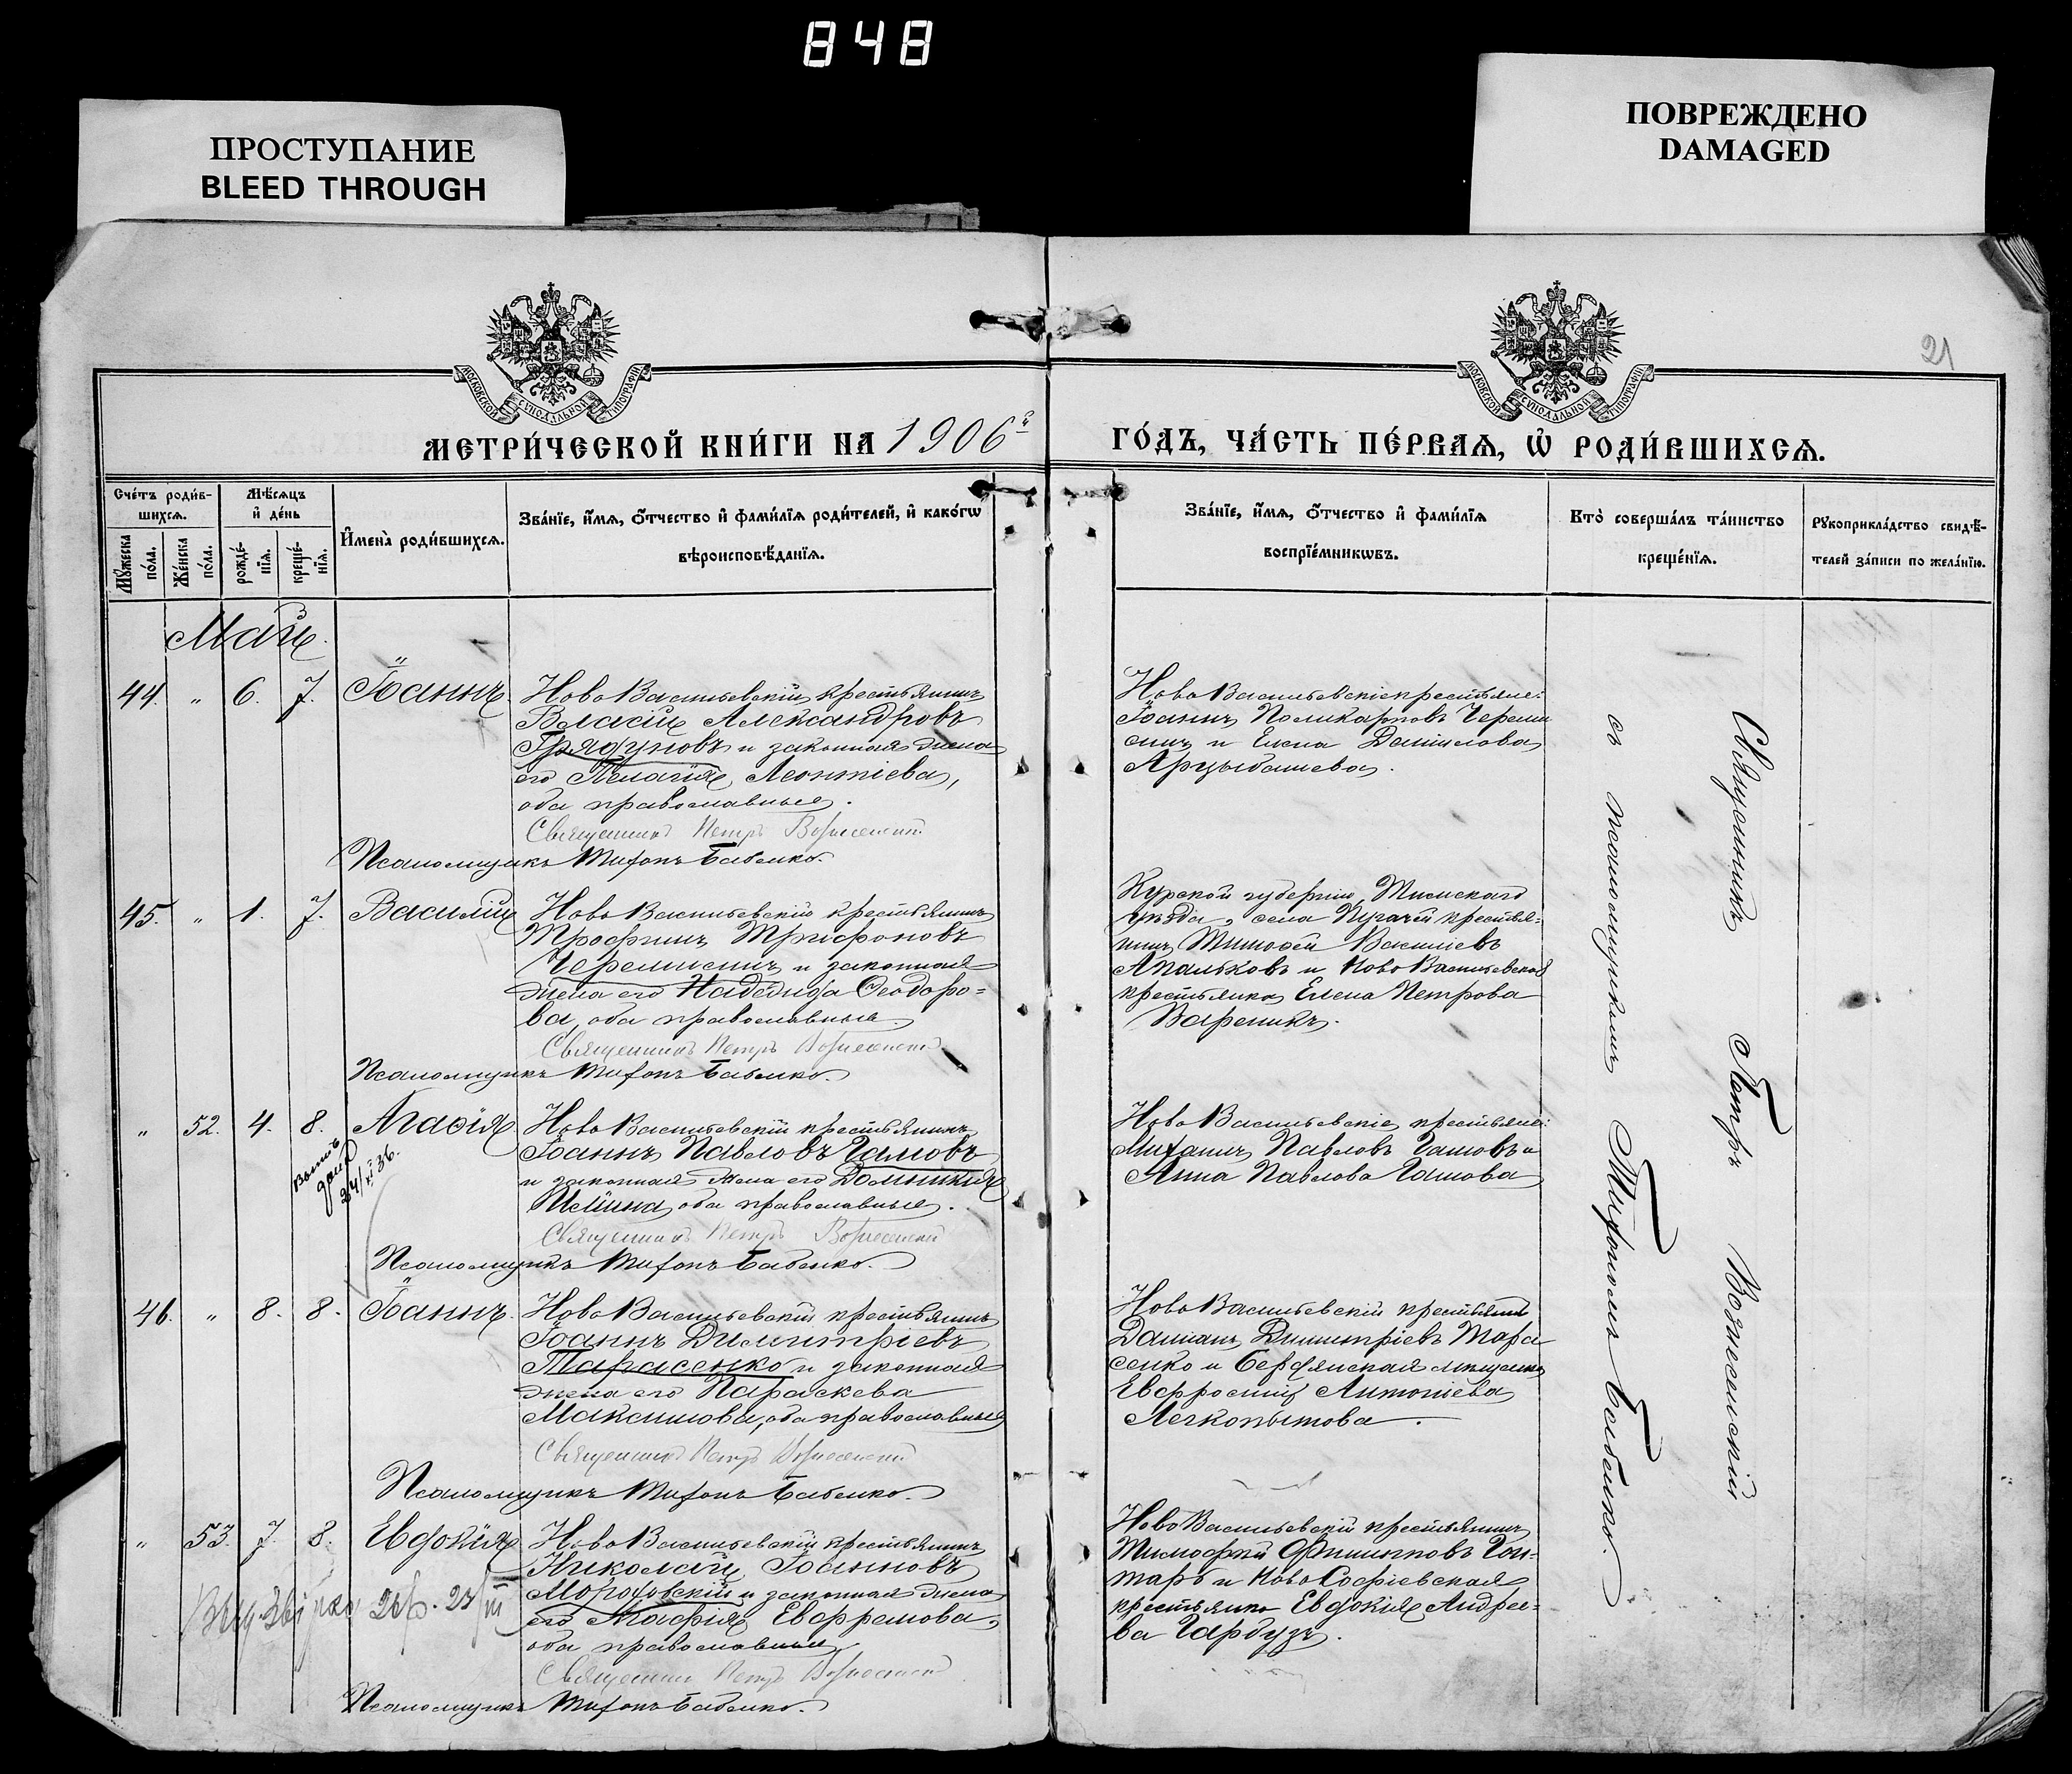 848
ПРОСТУПАНИЕ
BLEED THROUGH
ПОВРЕЖДЕНО
DAMAGED
МОСКОВСКОЙ СУНОДАЛЬНОЙ ТИПОГРАФІИ
МОСКОВСКОЙ СУНОДАЛЬНОЙ ТИПОГРАФІИ
21
МЕТРИ́ЧЕСКОЙ КНИ́ГИ НА 1906й
ГО́ДЪ, ЧА́СТЬ ПЕ́РВАѦ, Ѡ҆ РОДИ́ВШИХСѦ.
Сче́тъ роди́в-
шихсѧ.
Мꙋ́жеска по́ла.
Же́нска по́ла.
Мѣ́сѧцъ
и҆ де́нь
рожде́-
нїѧ.
креще́-
нїѧ.
И҆мена̀ роди́вшихсѧ.
Зва́нїе, и҆́мѧ, ѻ҆́тчество и҆ фами́лїѧ роди́телей, и҆ како́гѡ
вѣроисповѣ́данїѧ.
Зва́нїе, и҆́мѧ, ѻ҆́тчество и҆ фами́лїѧ
воспрїе́мникѡвъ.
Кто̀ соверша́лъ та́инство
креще́нїѧ.
Рꙋкоприкла́дство свидѣ́-
телей за́писи по жела́нїю.
Май.
44. " 6. 7. Іоаннъ.
НовоВасильевскій крестьянинъ
Власій Александровъ
Грядуновъ и законная жена
его Пелагія Леонтіева,
оба православные.
Священникъ Петръ Вознесенскій
Псаломщикъ Тихонъ Бабенко.
НовоВасильевскіе крестьяне:
Іоаннъ Поликарповъ Череми
синъ и Елена Данилова
Арцыбашева.
45. " 1. 7. Василій
НовоВасильевскій крестьянинъ
Трофимъ Трифоновъ
Черемисинъ и законная
жена его Надежда Ѳеодоро-
ва, оба православные.
Священникъ Петръ Вознесенскій
Псаломщикъ Тихонъ Бабенко.
Курской губерніи, Тимскаго
уѣзда, села крестья-
нинъ Тимоѳей Василіевъ
Апальковъ и НовоВасильевская
крестьянка Елена Петрова
Вареникъ.
" 52. 4. 8. Агаѳія
НовоВасильевскій крестьянинъ
Іоаннъ Павловъ Чамовъ
и законная жена его Домникія
оба православные.
Священникъ Петръ Вознесенскій
Псаломщикъ Тихонъ Бабенко.
НовоВасильевскіе крестьяне:
Михаилъ Павловъ Чамовъ и
Анна Павлова Чамова
46. " 8. 8. Іоаннъ.
НовоВасильевскій крестьянинъ
Іоаннъ Димитріевъ
Тарасенко и законная
жена его Параскева
Максимова, оба православные
Священникъ Петръ Вознесенскій
Псаломщикъ Тихонъ Бабенко.
НовоВасильевскій крестьянинъ
Даміанъ Димитріевъ Тара
сенко и Бердянская мѣщанка
Евфросинія Антоніева
Легкопытова.
" 53. 7. 8. Евдокія
НовоВасильевскій крестьянинъ
Николай Іоанновъ
и законная жена
его Евфремова,
оба православные
Священникъ Петръ Вознесенскій
Псаломщикъ Тихонъ Бабенко.
НовоВасильевскій крестьянинъ
Тимофей Филипповъ Гон-
таръ и НовоСофіевская
крестьянка Евдокія Андрее-
ва Гарбузъ.
Священникъ Петръ Вознесенскій
съ псаломщикомъ Тихономъ Бабенко.